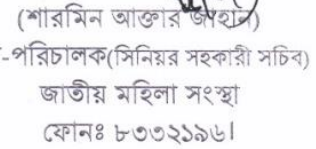 (শারমিন আক্তার জাহান)
-পরিচালক(সিনিয়র সহকারী সচিব)
জাতীয় মহিলা সংস্থা
ফোনঃ ৮৩৩২১৯৬।